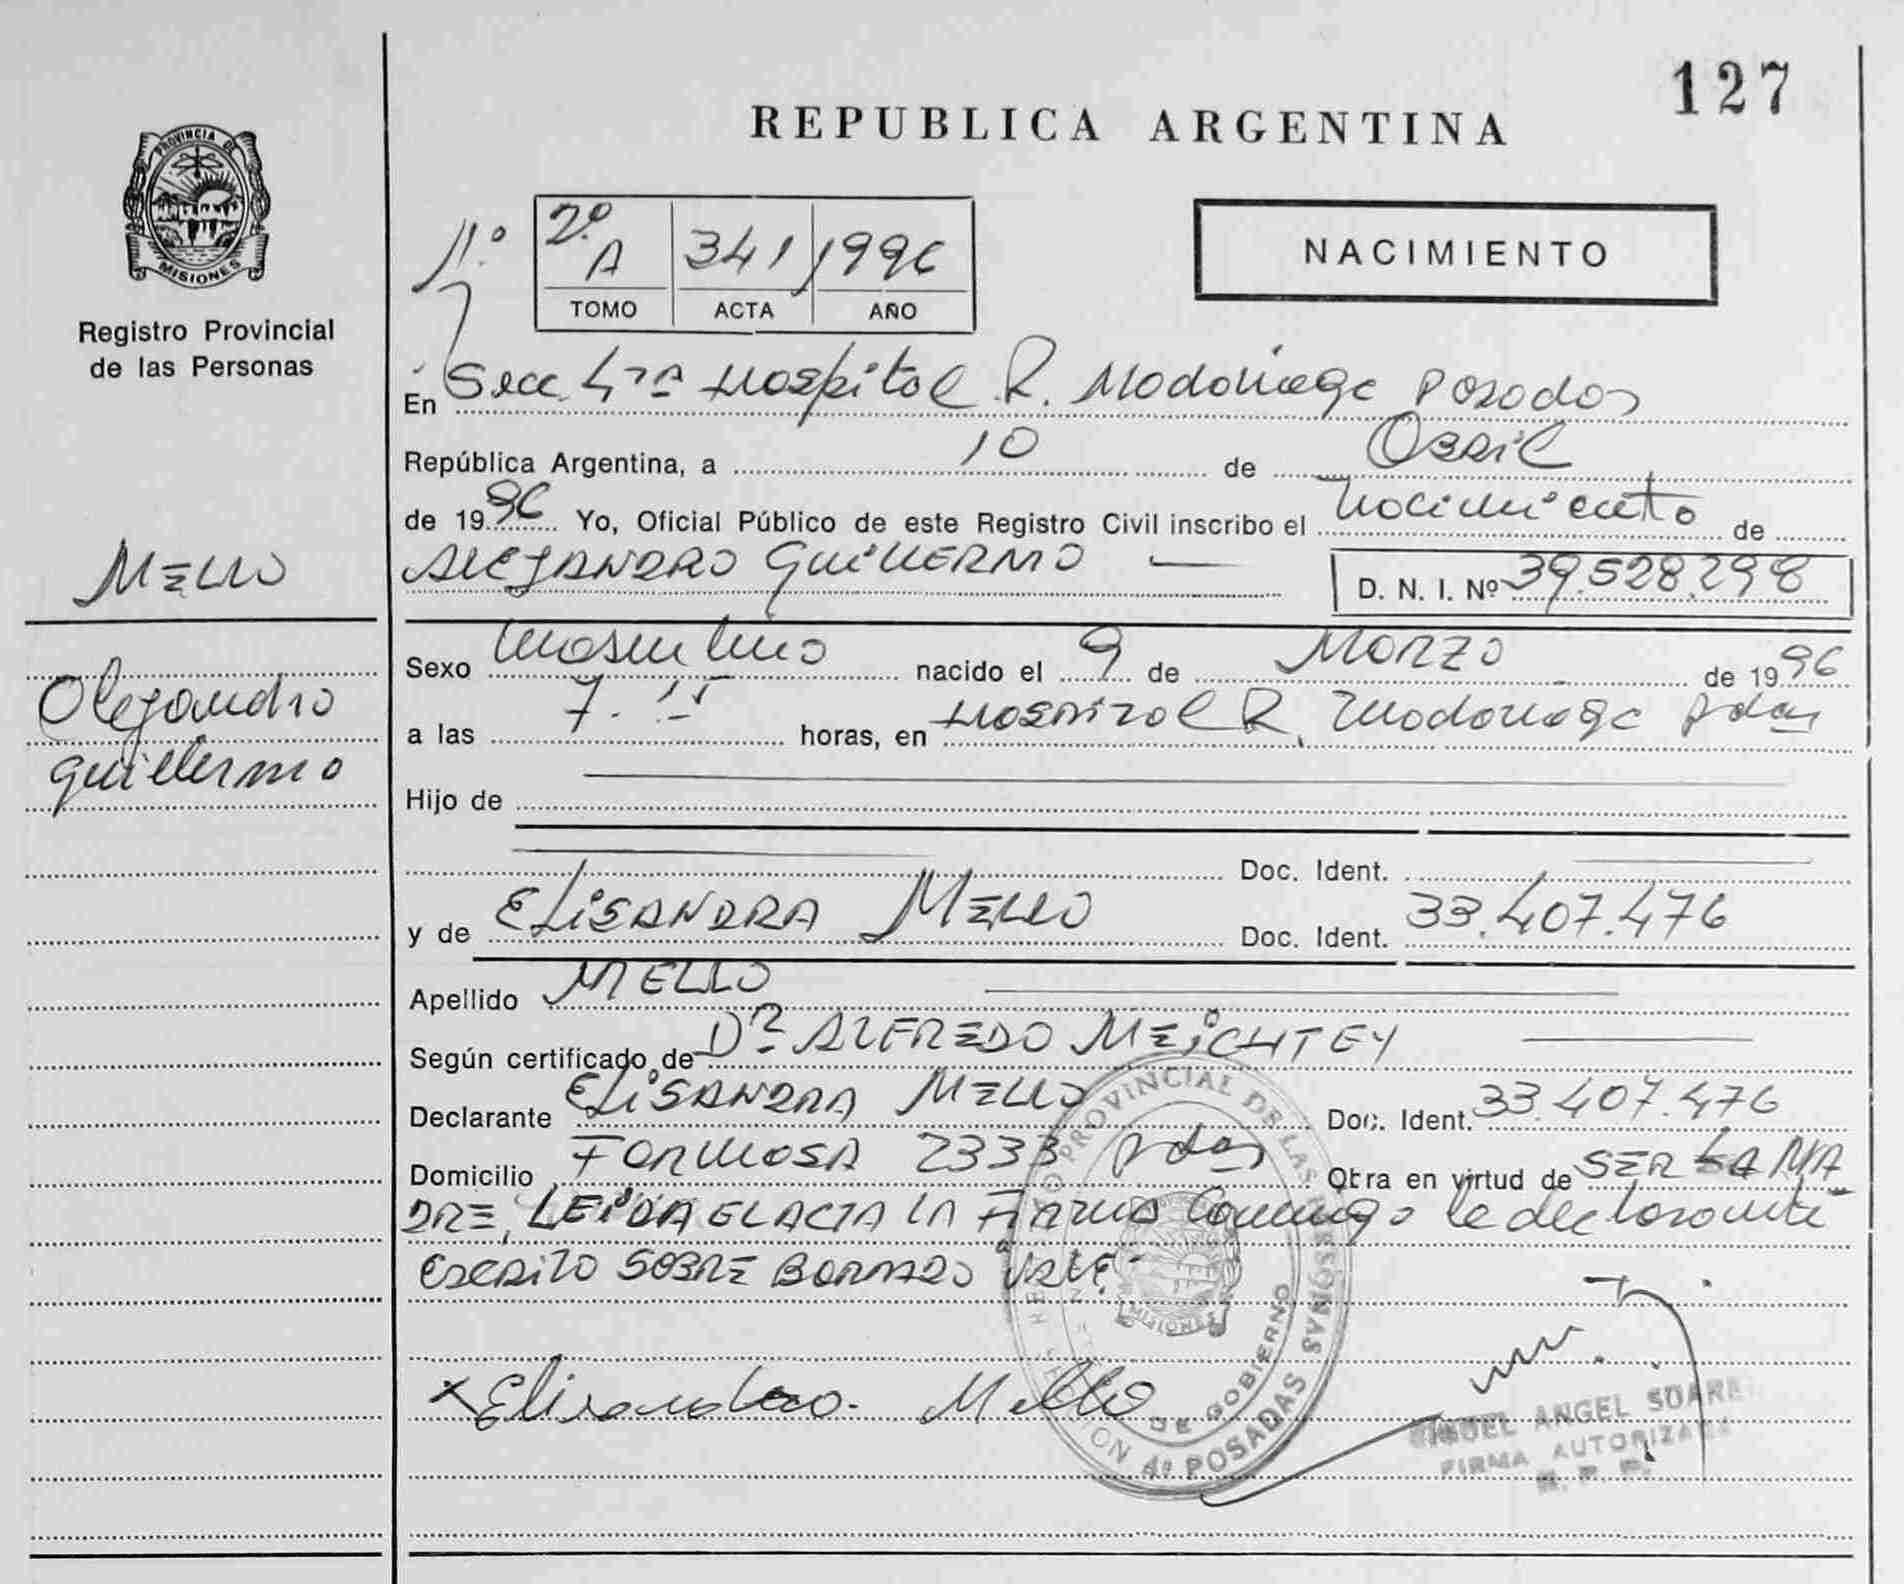 127
REPUBLICA ARGENTINA
PROVINCIA DE
MISIONES
Registro Provincial
de las Personas
2º A 341 1996
TOMO ACTA AÑO
NACIMIENTO
En Secc. 4ta Hospital R. Madariaga Posadas
República Argentina, a 10 de Abril
de 1996 Yo, Oficial Público de este Registro Civil inscribo el nacimiento de
Mello
ALEJANDRO GUILLERMO D. N. I. Nº 39.528.298
Alejandro
Guillermo
Sexo masculino nacido el 9 de Marzo de 1996
a las 7.15 horas, en Hospital R. Madariaga Pdas
Hijo de
Doc. Ident.
y de ELISANDRA MELLO Doc. Ident. 33.407.476
Apellido MELLO
Según certificado de Dr ALFREDO MEICHTEY
Declarante ELISANDRA MELLO Doc. Ident. 33.407.476
Domicilio FORMOSA 2333 Pdas Obra en virtud de SER LA MA
DRE, LEIDA EL ACTA LA FIRMA Conmigo la declarante
Escrito SOBRE BORRADO VALE
x Elisandra Mello
REGISTRO PROVINCIAL DE LAS PERSONAS
MISIONES
DE GOBIERNO
4ª POSADAS
MIGUEL ANGEL SUAREZ
FIRMA AUTORIZADA
R. P. P.